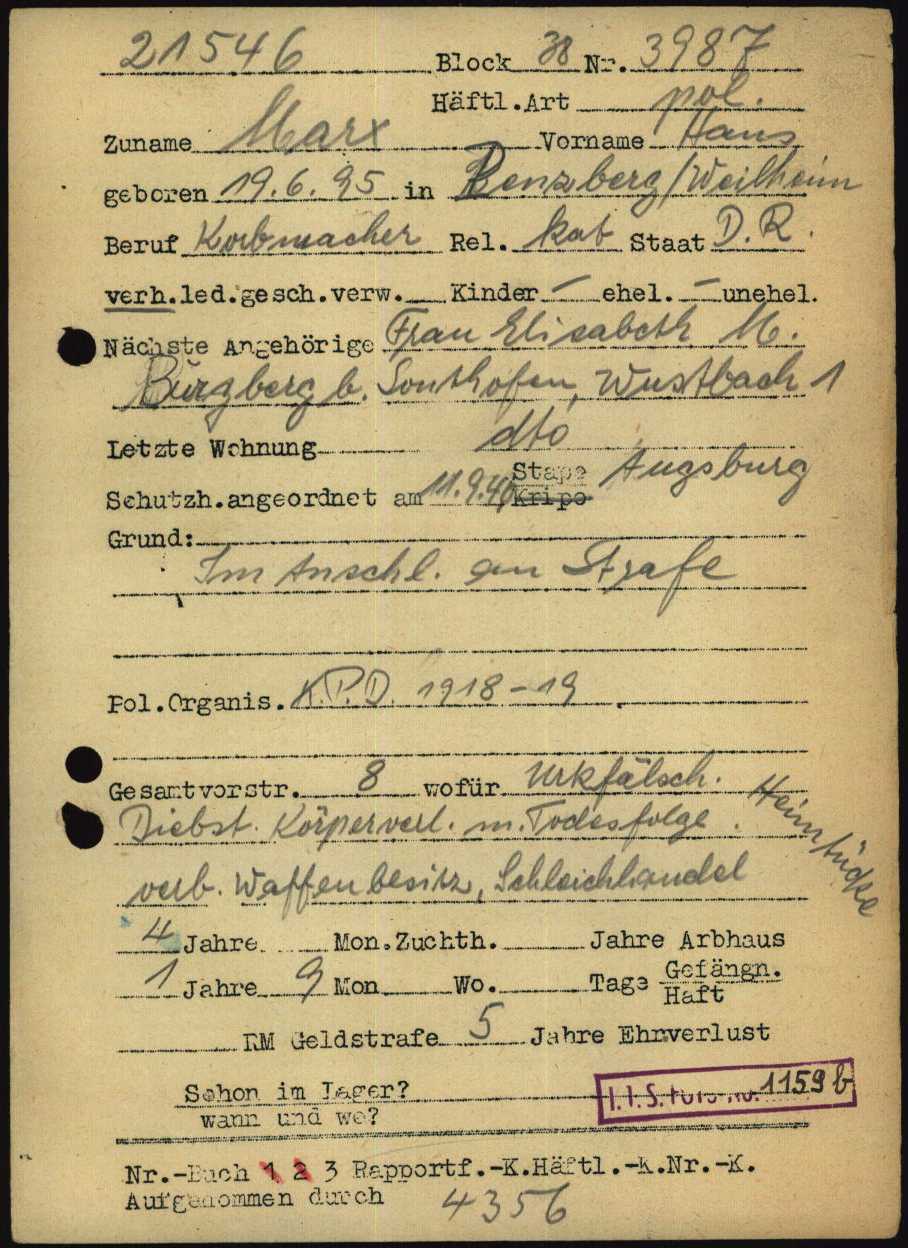 21546 Block 38 Nr. 3987
Häftl.Art pol.
Zuname Marx Vorname Hans
geboren 19.6.95 in Penzberg/Weilheim
Beruf Korbmacher Rel. kat Staat D.R.
verh.led.gesch.verw. Kinder – ehel. – unehel.
Nächste Angehörige Frau Elisabeth M.
Burgberg b. Sonthofen, Wustbach 1
Letzte Wohnung dto
Schutzh.angeordnet am 11.9.40 Stapo Kripo Augsburg
Grund:
Im Anschl. an Strafe
Pol.Organis. K.P.D. 1918-19
Gesamtvorstr. 8 wofür Urkfälsch.
Diebst. Körperverl. m. Todesfolge. Heimtücke
verb. Waffenbesitz, Schleichhandel
4 Jahre Mon.Zuchth. Jahre Arbhaus
1 Jahre 9 Mon Wo. Tage Gefängn.
Haft
RM Geldstrafe 5 Jahre Ehrverlust
Schon im Lager?
wann und wo?
I.T.S. FOTO No. 1159 b
Nr.-Buch 1 2 3 Rapportf.-K.Häftl.-K.Nr.-K.
Aufgenommen durch 4356